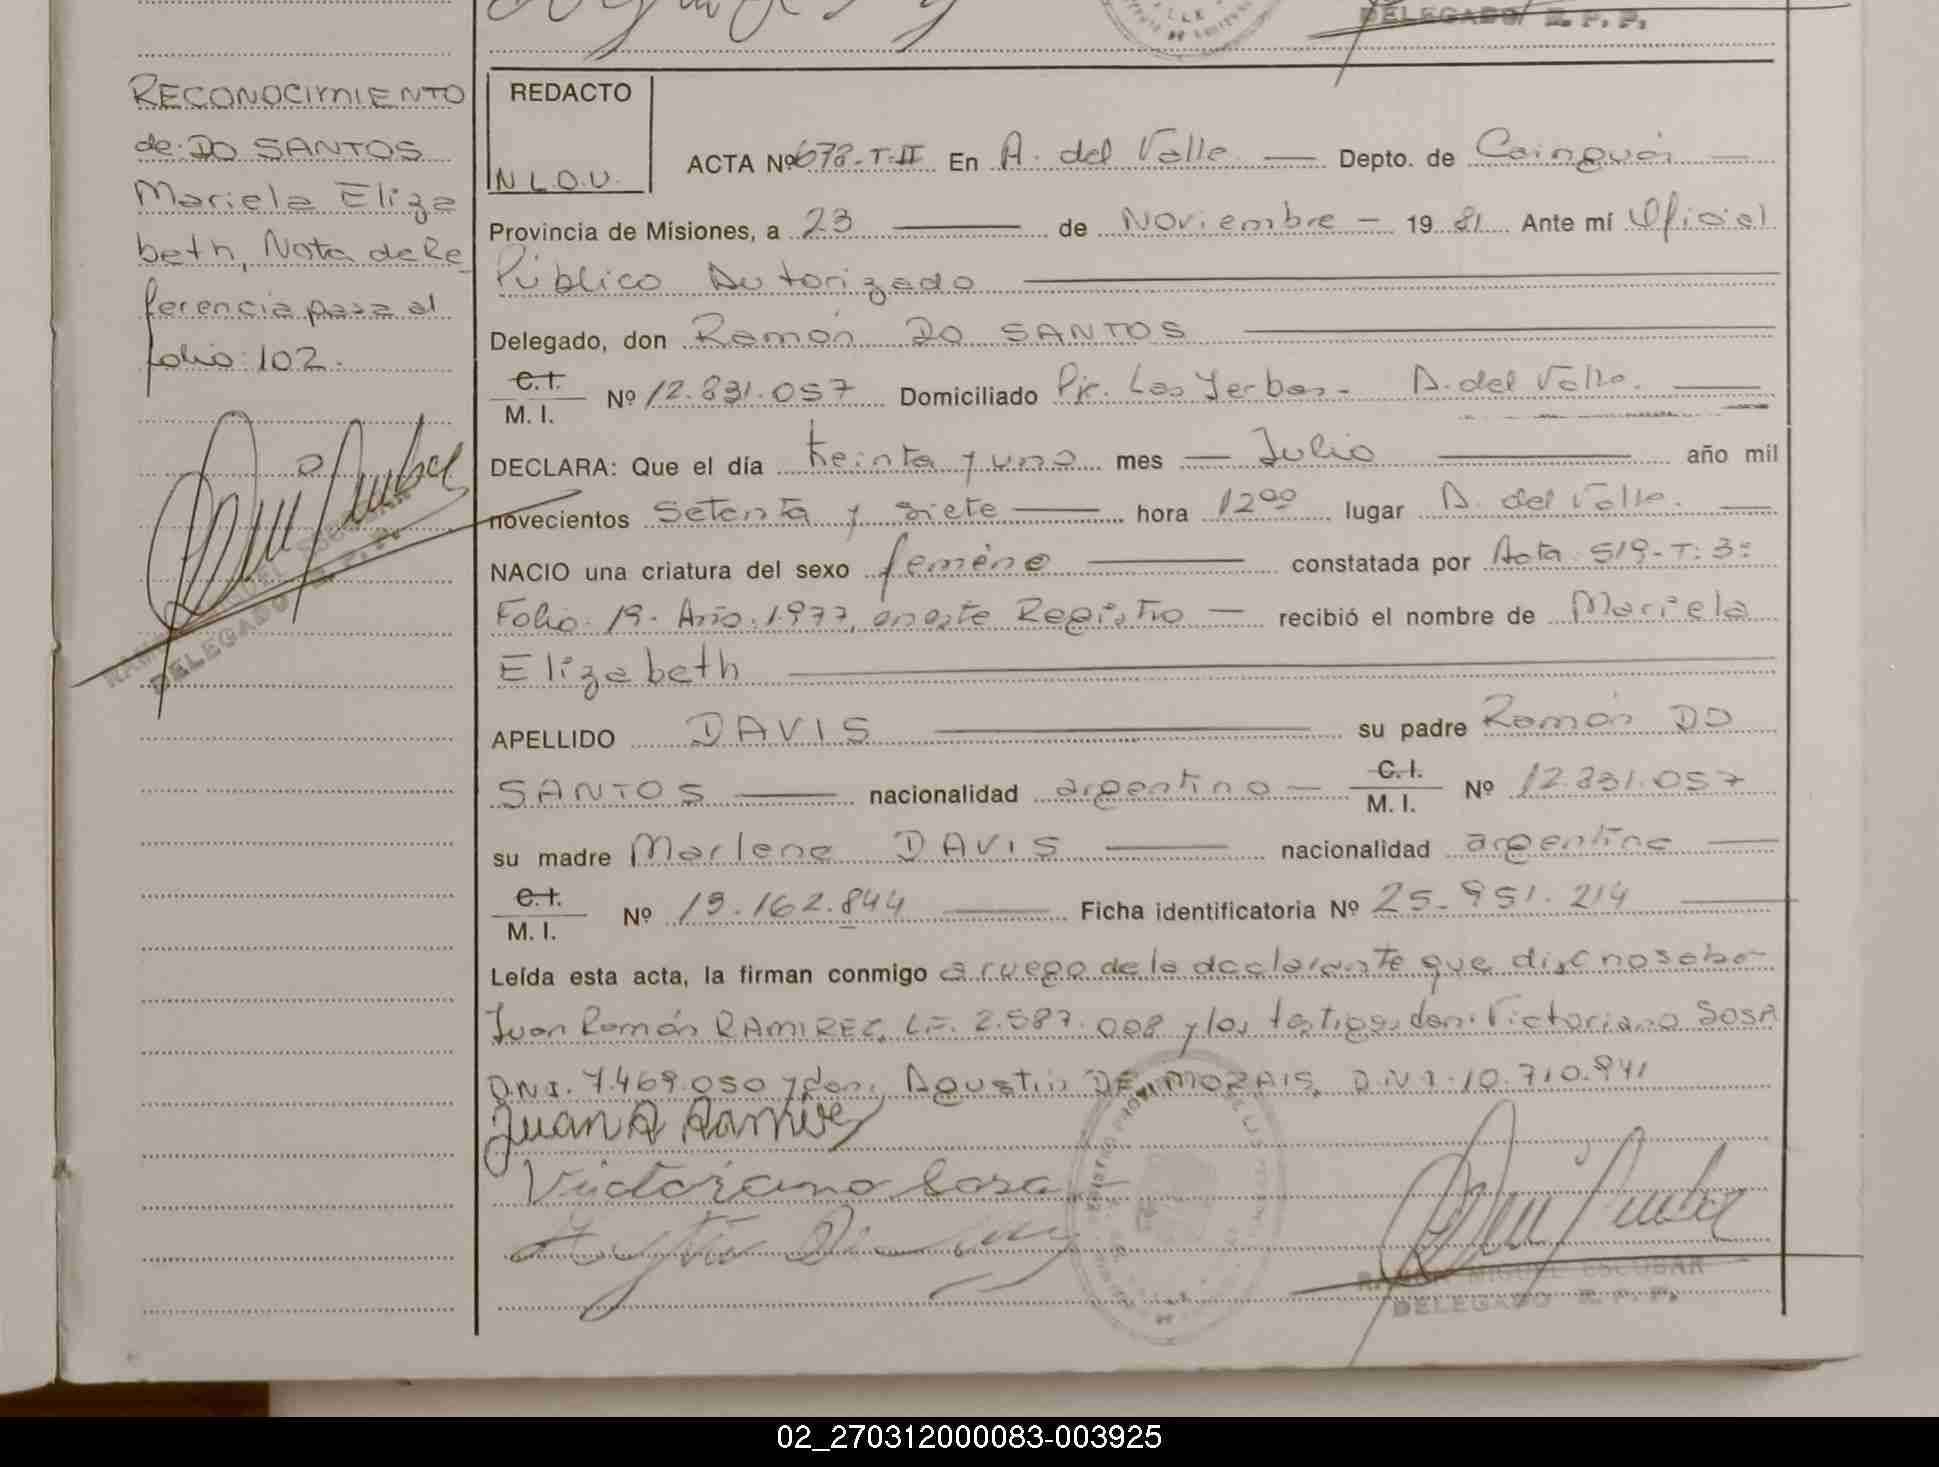 DELEGADO R. P. P.
RECONOCIMIENTO
de DO SANTOS
Mariela Eliza
beth, Nota de Re
ferencia pasa al
folio 102.
DELEGADO R. P. P.
REDACTO
N L.O.V.
ACTA Nº 678-T-II En A. del Valle Depto. de Cainguás
Provincia de Misiones, a 23 de Noviembre 1981 Ante mí Oficial
Público Autorizado
Delegado, don Ramón DO SANTOS
C.I. M. I. Nº 12.831.057 Domiciliado Pje. Las Yerbas - A. del Valle.
DECLARA: Que el día treinta y uno mes Julio año mil
novecientos Setenta y siete hora 12⁰⁰ lugar A. del Valle.
NACIO una criatura del sexo femeno constatada por Acta 519-T: 3º
Folio 19. Año: 1977, en este Registro recibió el nombre de Mariela
Elizabeth
APELLIDO DAVIS su padre Ramón DO
SANTOS nacionalidad argentino C.I. M. I. Nº 12.831.057
su madre Marlene DAVIS nacionalidad argentina
C.I. M. I. Nº 13.162.844 Ficha identificatoria Nº 25.951.214
Leída esta acta, la firman conmigo a ruego de la declarante que dise no sabe
Juan Ramón RAMIREZ, L.E. 2.587.008 y los testigos don: Victoriano SOSA
D.N.I. 7.469.050 y don, Agustin DE MORAIS, D.N.I. 10.710.941
Juan R Ramires
Victoriano Sosa
RAMON MIGUEL ESCOBAR
DELEGADO R. P. P.
02_270312000083-003925